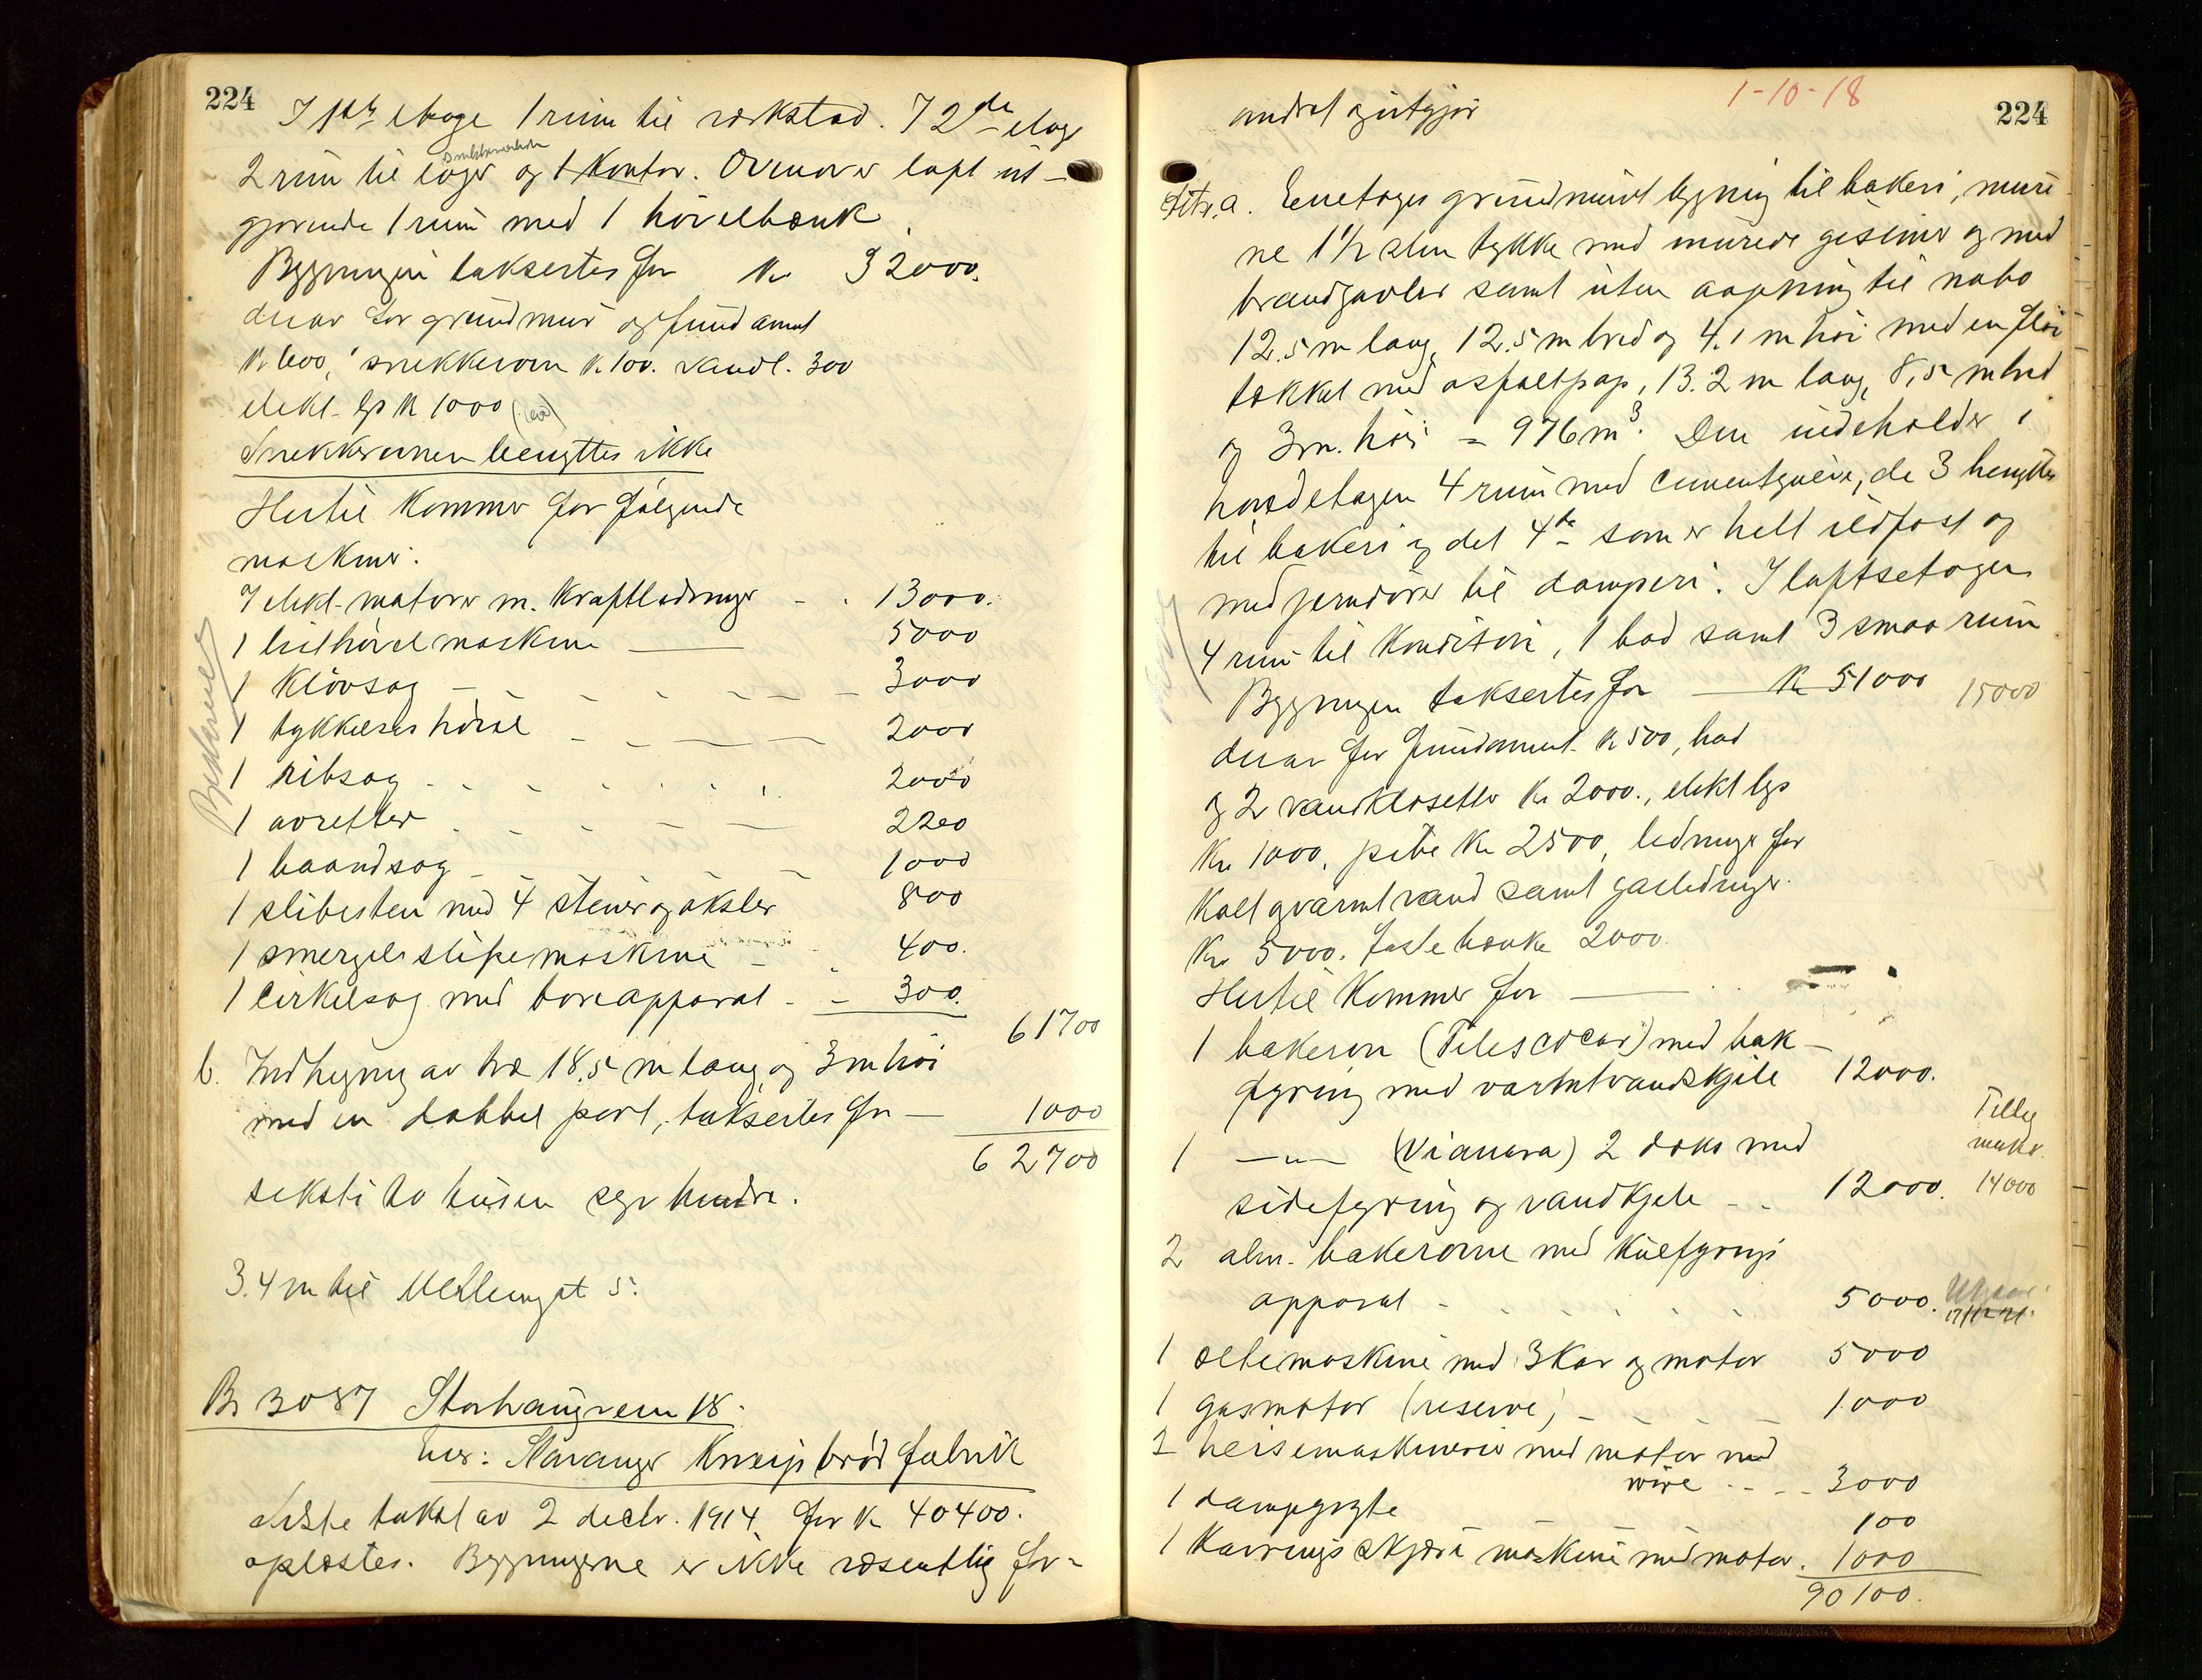 224
I 1ste etage 1 rum til verkstad. I 2den etage
snekkerverksted
2 rum til lager og 1 Kontor. Ovenover loft ut-
gjørende 1 rum med 1 høvelbænk.
Bygningen taksertes for Kr 32000.
derav for grundmur og fundament
Kr 600, snekkerovn Kr 100. vandl. 300
elekt. lys Kr 1000
Snekkerovnen benyttes ikke
Hertil Kommer for følgende
maskiner:
7 elekt. motorer m. Kraftledninger - - 13000.
1 listhøvelmaskine — 5000
1 Kløvsag - - - - 3000
1 tykkelseshøvel - - - 2000
1 ribsag - - - - 2000
1 avretter - - - 2200
1 baandsag - - 1000
1 slibesten med 4 stener og aksler 800
1 smergelslipemaskine - - 400.
1 Cirkelsag med boreapparat - - 300.
61700
b. Indhegning av træ 18.5 m lang og 3 m høi
med en dobbel port, taksertes for — 1000
62700
seksti to tusen syv hundre.
3.4 m til Mellemgat 5.
Br 3087 Storhaugveien 18.
Eier: Stavanger Kneipbrødfabrik
Siste takst av 2 decbr. 1914 for Kr 40400.
oplæstes. Bygningerne er ikke væsentlig for-
1-10-18
224
andret og utgjør
Litr. a. Enetages grundmuret bygning til bakeri, mure
ne 1 1/2 sten tykke med murede gesimser og med
brandgavler samt uten aapning til nabo
12.5 m lang, 12.5 m bred og 4.1 m høi med en fløi
tækket med asfaltpap, 13.2 m lang, 8,5 m bred
og 3 m. høi = 976 m3. Den indeholder i
hovedetagen 4 rum med cementgulve, de 3 benyttes
til bakeri og det 4de som er helt ildfast og
med jerndører til damperi. I loftsetagen
4 rum til Konditori, 1 bad samt 3 smaa rum
Bygningen taksertes for — Kr 51000 15000
derav for fundament Kr 500, bad
og 2 vandklosetter Kr 2000., elekt lys
Kr 1000, pibe Kr 2500, ledninger for
Kalt og varmt vand samt gasledninger
Kr 5000. faste bænke 2000.
Hertil Kommer for —
1 bakerovn (Telescocar) med bak-
fyring med varmtvandskjele 12000.
Tillæg
maskr.
14000
1 —"— (Vianara) 2 doks med
sidefyring og vandkjele - - 12000.
2 alm. bakerovne med Kulfyrings
apparat - - - - 5000. Utgaar
17/12-21.
1 æltemaskine med 3 Kar og motor 5000
1 gasmotor (reserve) - - - 1000
2 heisemaskinerier med motor med
wire - - - 3000
1 dampgryte 100
1 Kavringsskjære maskine med motor. 1000
90100.